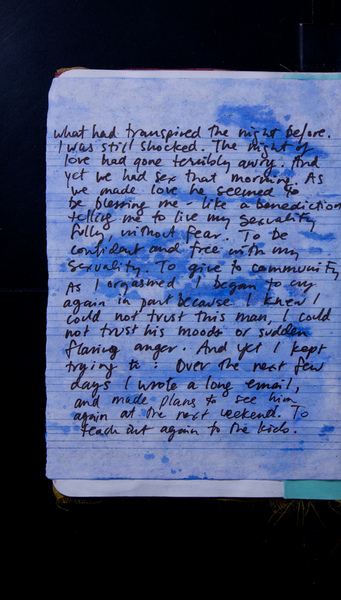 what had transpired the night before.
I was still shocked. The night of
love had gone terribly awry. And
yet we had sex that morning. As
we made love he seemed to
be blessing me - like a benediction
telling me to live my sexuality
fully, without fear. To be
confident and free with my
sexuality. To give to community
As I orgasmed I began to cry
again in part because I knew I
could not trust this man, I could
not trust his moods or sudden
flaring anger. And yet I kept
trying to : Over the next few
days I wrote a long email,
and made plans to see him
again at the next weekend. To
reach out again to the kids.